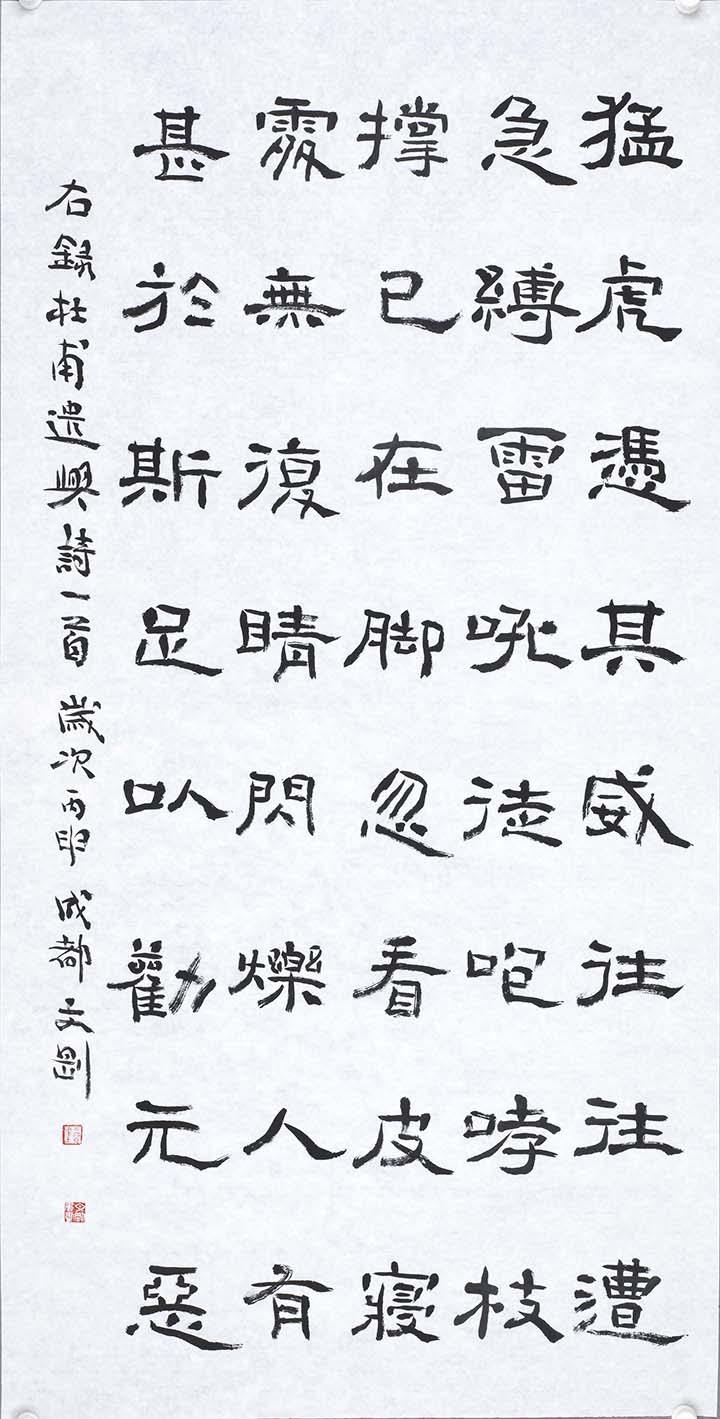 猛虎憑其威往往漕
急縛雷吼徒咆哮枝
撑已在脚忽看皮寢
處無復睛閃爍人有
甚於斯足㕥勸元惡
右錄杜甫遣興詩一首 歲次丙申 成都文剛